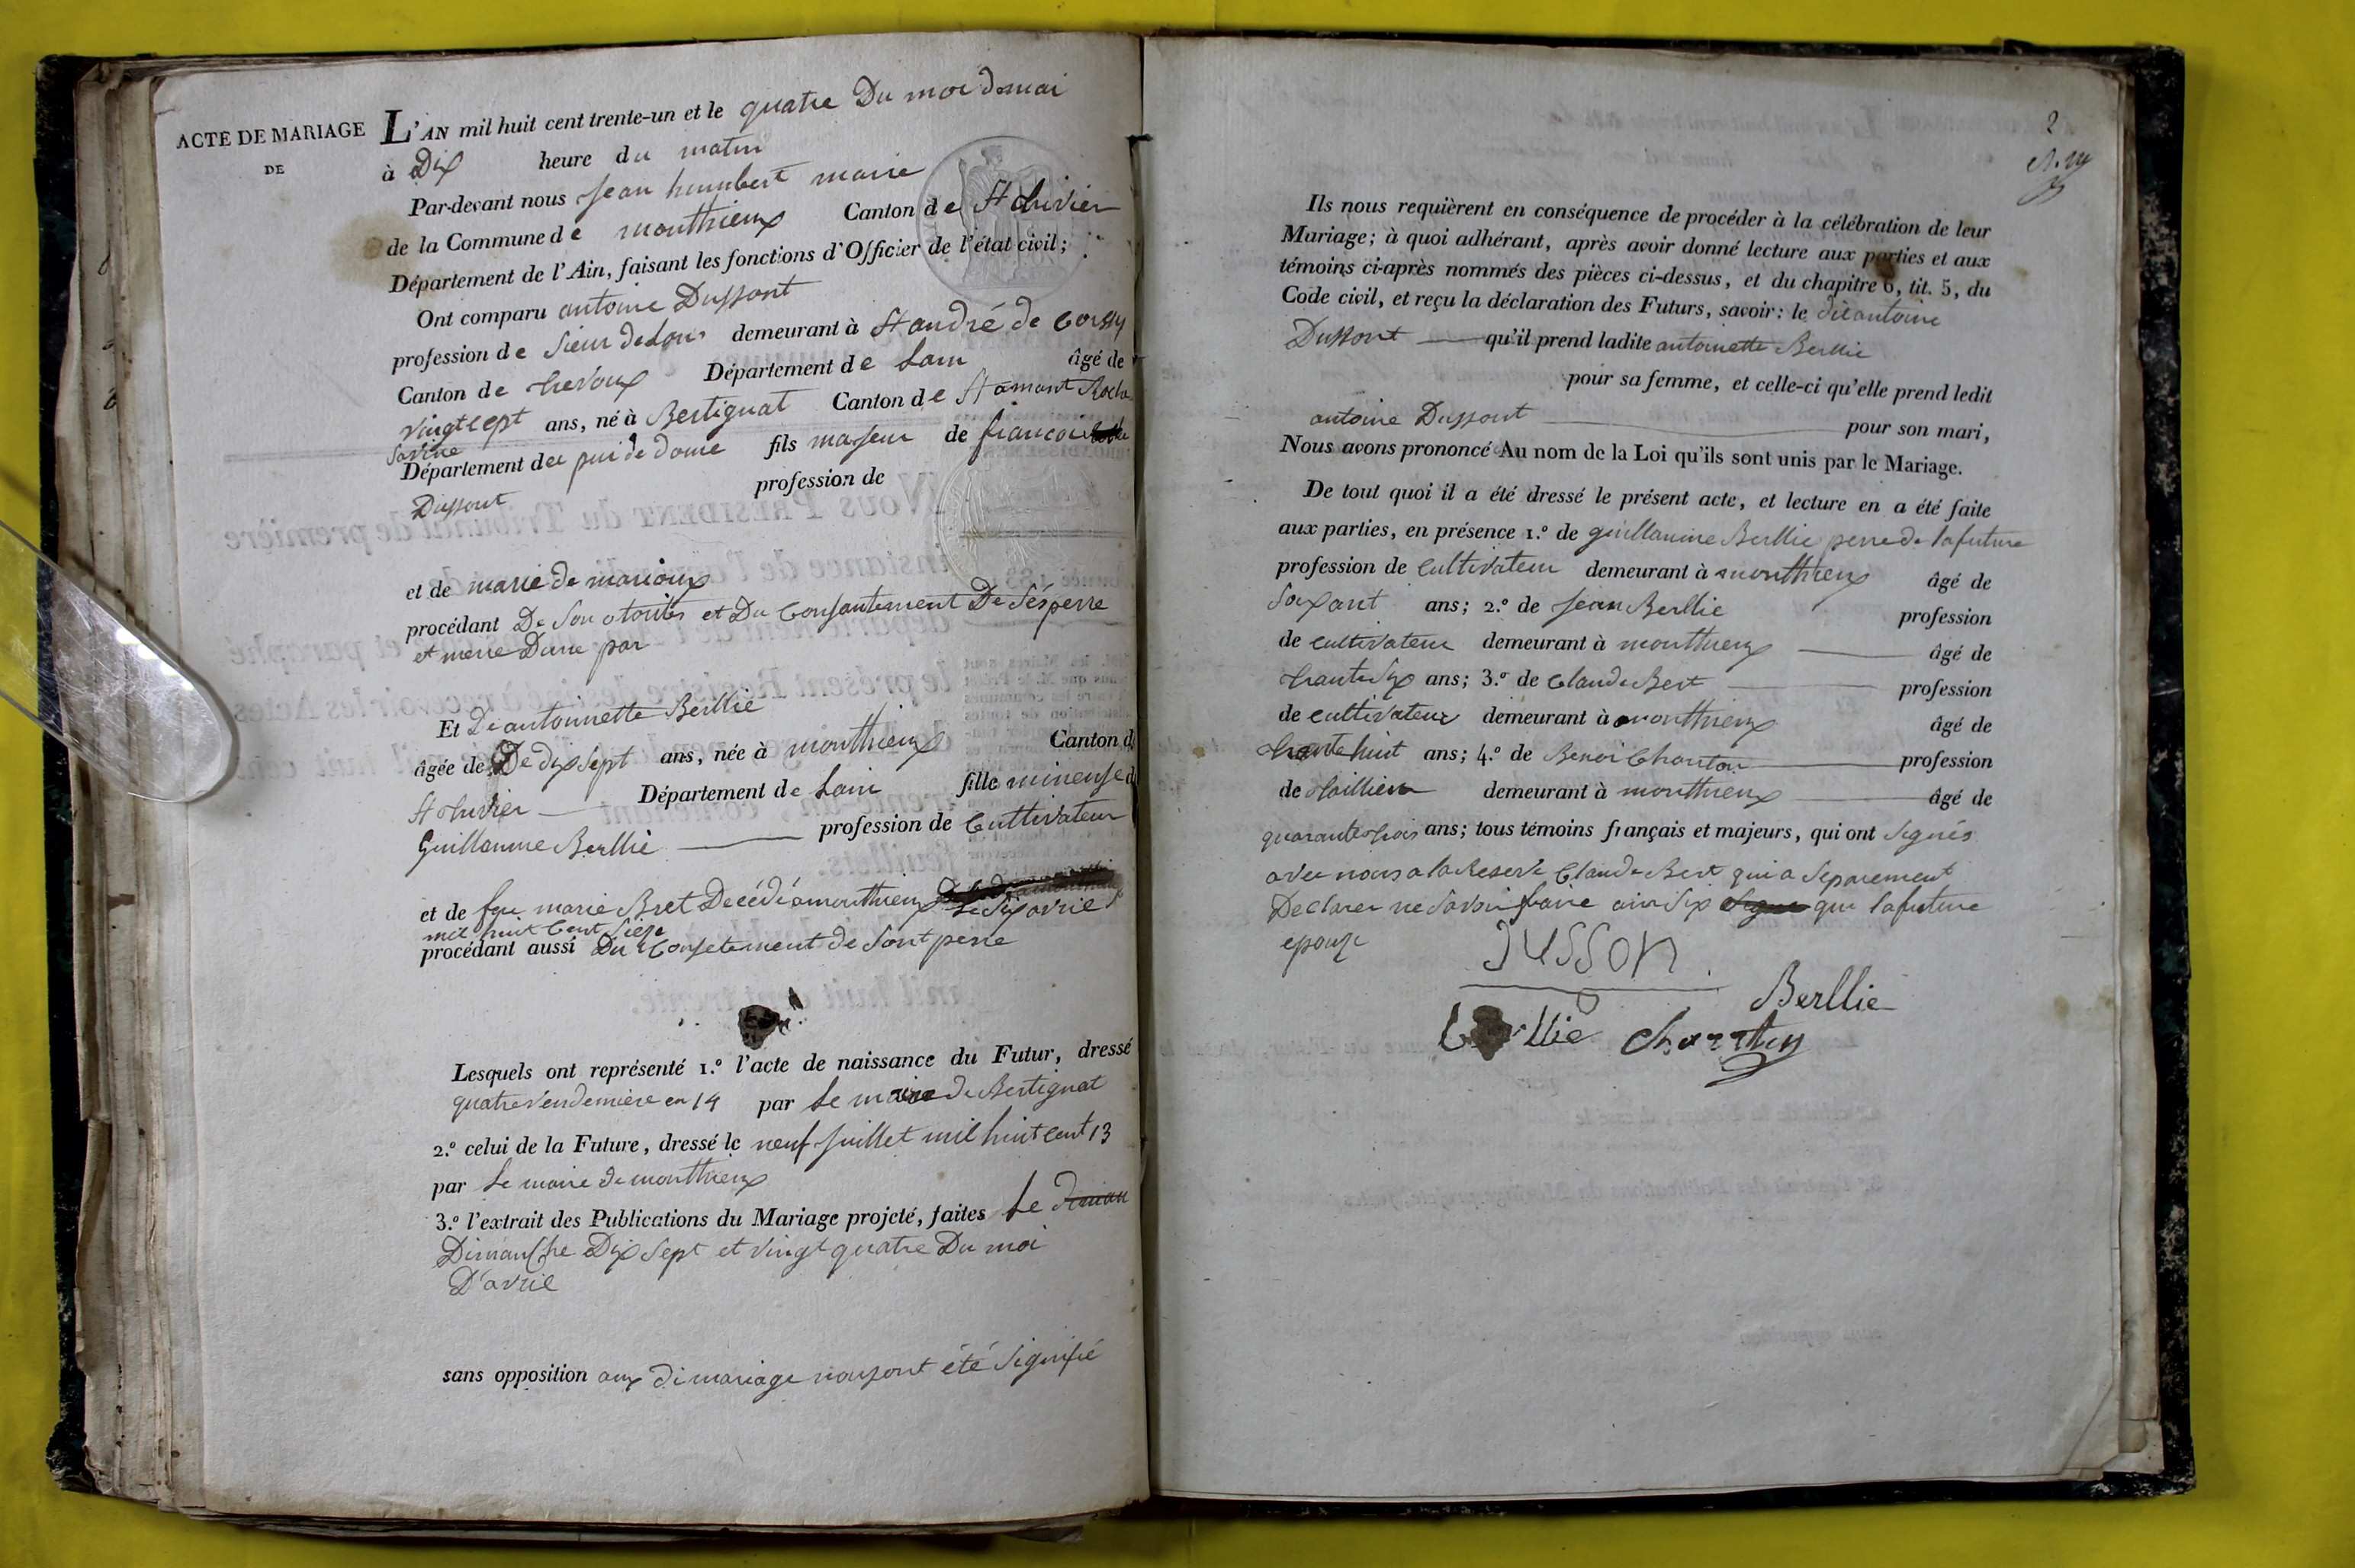 ACTE DE MARIAGE
DE
L'AN mil huit cent trente-un et le quatre Du moi de mai
à Dix heure du matin
Par-devant nous Jean humbert maire
de la Commune de monthieux Canton de St trivier
Département de l'Ain, faisant les fonctions d'Officier de l'état civil;
Ont comparu antoine Dussont
profession de sieur de Lons demeurant à St andré de Corssy
Canton de trevoux Département de Lain âgé de
vingt sept ans, né à Bertignat Canton de St amant Roche
savine
Département de puis de dome fils majeur de francois
Dussont profession de
et de marie de marioux
procédant De son otorités et Du Consantement De Sés perre
et merre Dune par
Et De antoinnette Berllie
âgée de De dix sept ans, née à monthieux Canton de
St trivier Département de Lain fille mineuse de
Guillaume Berllie profession de Cultivateur
et de feue marie Bret Decédé a monthieux le six avriel
mil huit Cent sieze
procédant aussi Du Consetement de sont perre
Lesquels ont représenté 1.° l'acte de naissance du Futur, dressé
quatre vendemiere en 14 par Le maire de Bertignat
2.° celui de la Future, dressé le neuf Juillet mil huit cent 13
par Le maire de monthieux
3.° l'extrait des Publications du Mariage projeté, faites Le
Dimanche Dix sept et vingt quatre Du moi
D'avril
sans opposition aux di mariage nousont été signifié
2
Ils nous requièrent en conséquence de procéder à la célébration de leur
Mariage; à quoi adhérant, après avoir donné lecture aux parties et aux
témoins ci-après nommés des pièces ci-dessus, et du chapitre 6, tit. 5, du
Code civil, et reçu la déclaration des Futurs, savoir: le dit antoine
Dussont qu'il prend ladite antoinette Berllie
pour sa femme, et celle-ci qu'elle prend ledit
antoine Dussont pour son mari,
Nous avons prononcé Au nom de la Loi qu'ils sont unis par le Mariage.
De tout quoi il a été dressé le présent acte, et lecture en a été faite
aux parties, en présence 1.° de guillaume Berllie perre de la future
profession de Cultivateur demeurant à monthieux âgé de
soixant ans; 2.° de Jean Berllie profession
de cultivateur demeurant à monthieux âgé de
trante six ans; 3.° de Claude Bert profession
de cultivateur demeurant à monthieux âgé de
trante huit ans; 4.° de Benoi Chanton profession
de taillieur demeurant à monthieux âgé de
quarante trois ans; tous témoins français et majeurs, qui ont signés
avec nous a la Reserve Claude Bert qui a separement
Declarer ne savoir faire ainsi que la future
epouze
JUSSON
Berllie
Berllie Chanton